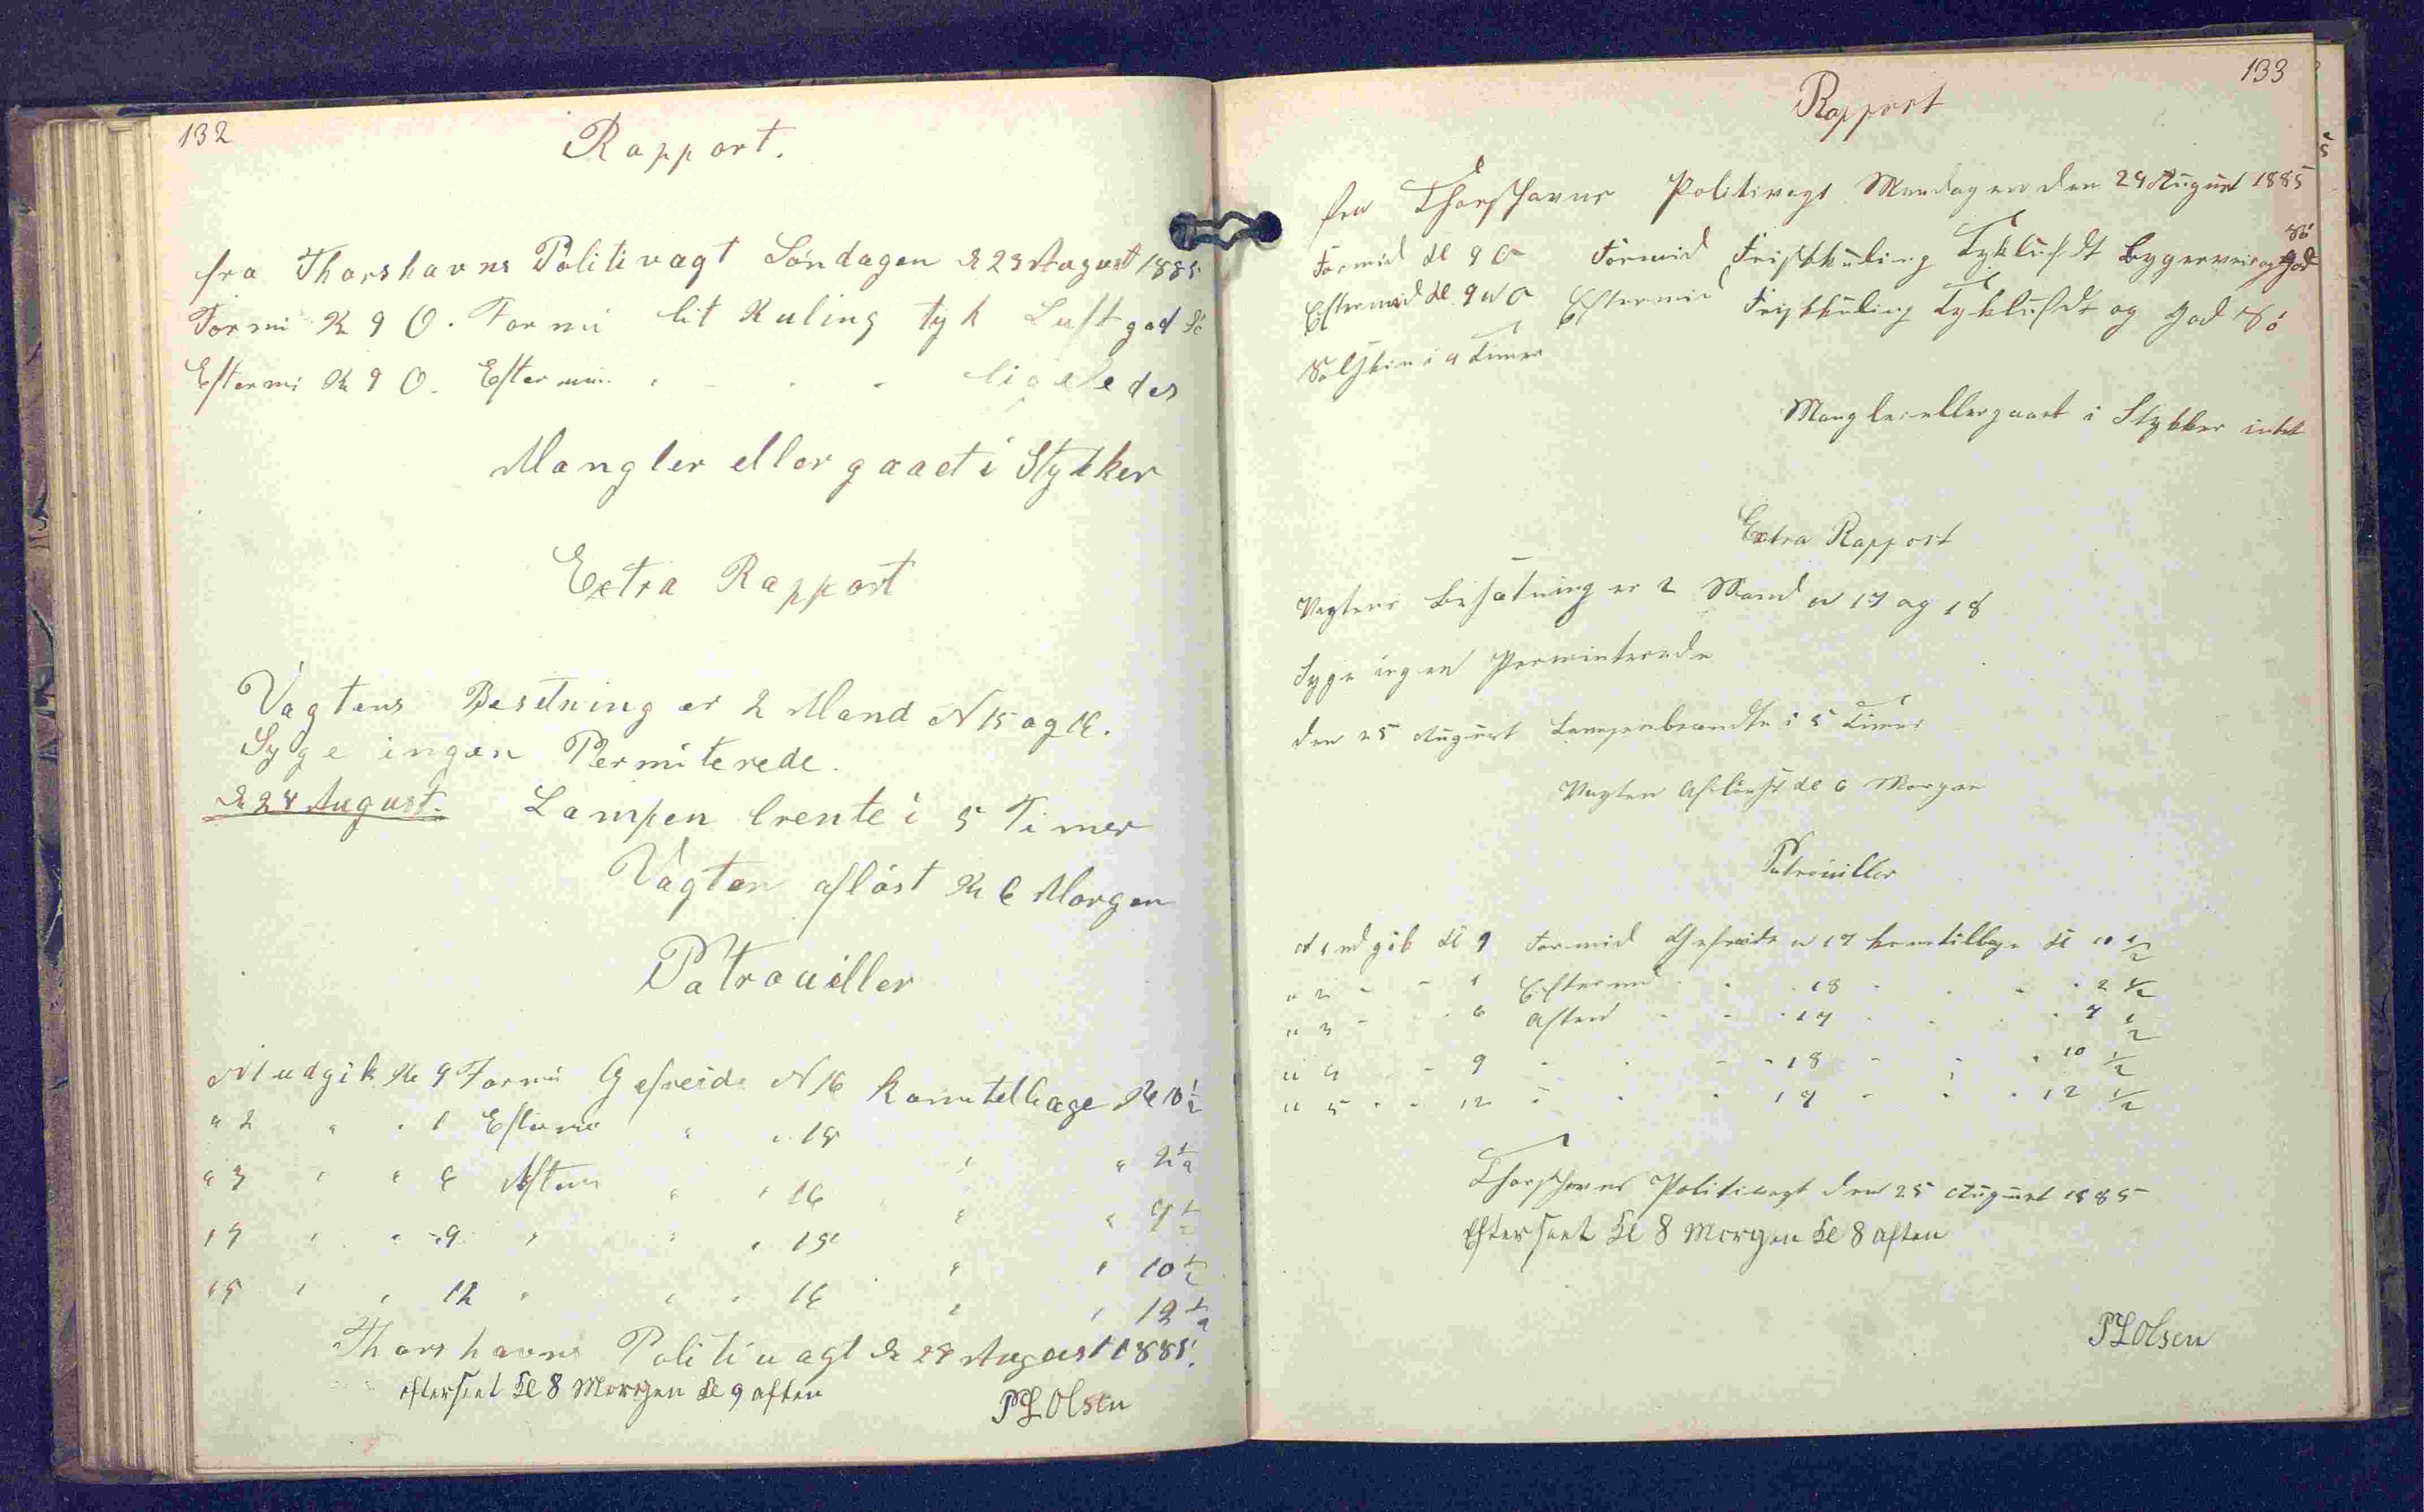 132
Rapport.
fra Thorshavns Politivagt Søndagen d 23 August 1885
Formi Kl 9 O. Formi lit Kuling tyk Luft god Sö
Eftermi Kl 9 O. Eftermi " - " - ligeledes
Mangler eller gaaet i Stykker
Extra Rapport
Vagtens Besetning er 2 Mand N 15 og 16.
Syge ingen Permiterede.
d 24 August. Lampen brente i 5 Timer
Vagten afløst Kl 6 Morgen
Patrouiller
N 1 udgik Kl 9 Formi Gefreide N 16 kom tilbage Kl 10 1/2
" 2 " " 1 Eftermi " " 15 " " 2 1/2
" 3 " " 6 Aften " " 16 " " 7 1/2
" 4 " " 9 " " " 15 " " 10 1/2
" 5 " " 12 " " " 16 " " 12 1/2
Thorshavns Politivagt d 24 August 1885.
efterseet Kl 8 Morgen Kl 9 aften
PLOlsen
133
Rapport
fra Thorshavns Politivagt Mandagen den 24 August 1885
Formid Kl 9 O Formid Friskkuling Tykluft Bygerveir og God Sö
Eftermid Kl 9 N O Eftermid Friskkuling Tykluft og God Sö
Solskin i 4 Timer
Mangler eller gaaet i Stykker intet
Extra Rapport
Vagtens Besætning er 2 Mand N 17 og 18
Syge ingen Permiterede
den 25 August Lampen brendte i 5 Timer
Vagten Afløst Kl 6 Morgen
Patrouiller
N 1 udgik Kl 9 Formid Gefreide N 17 kom tilbage Kl 10 1/2
" 2 - - 1 Eftermi - - 18 - - 2 1/2
" 3 - - 6 Aften - - 17 - - 7 1/2
" 4 - - 9 - - - 18 - - 10 1/2
" 5 - - 12 - - - 17 - - 12 1/2
Thorshavns Politivagt den 25 August 1885
Efterseet Kl 8 Morgen Kl 8 aften
PLOlsen